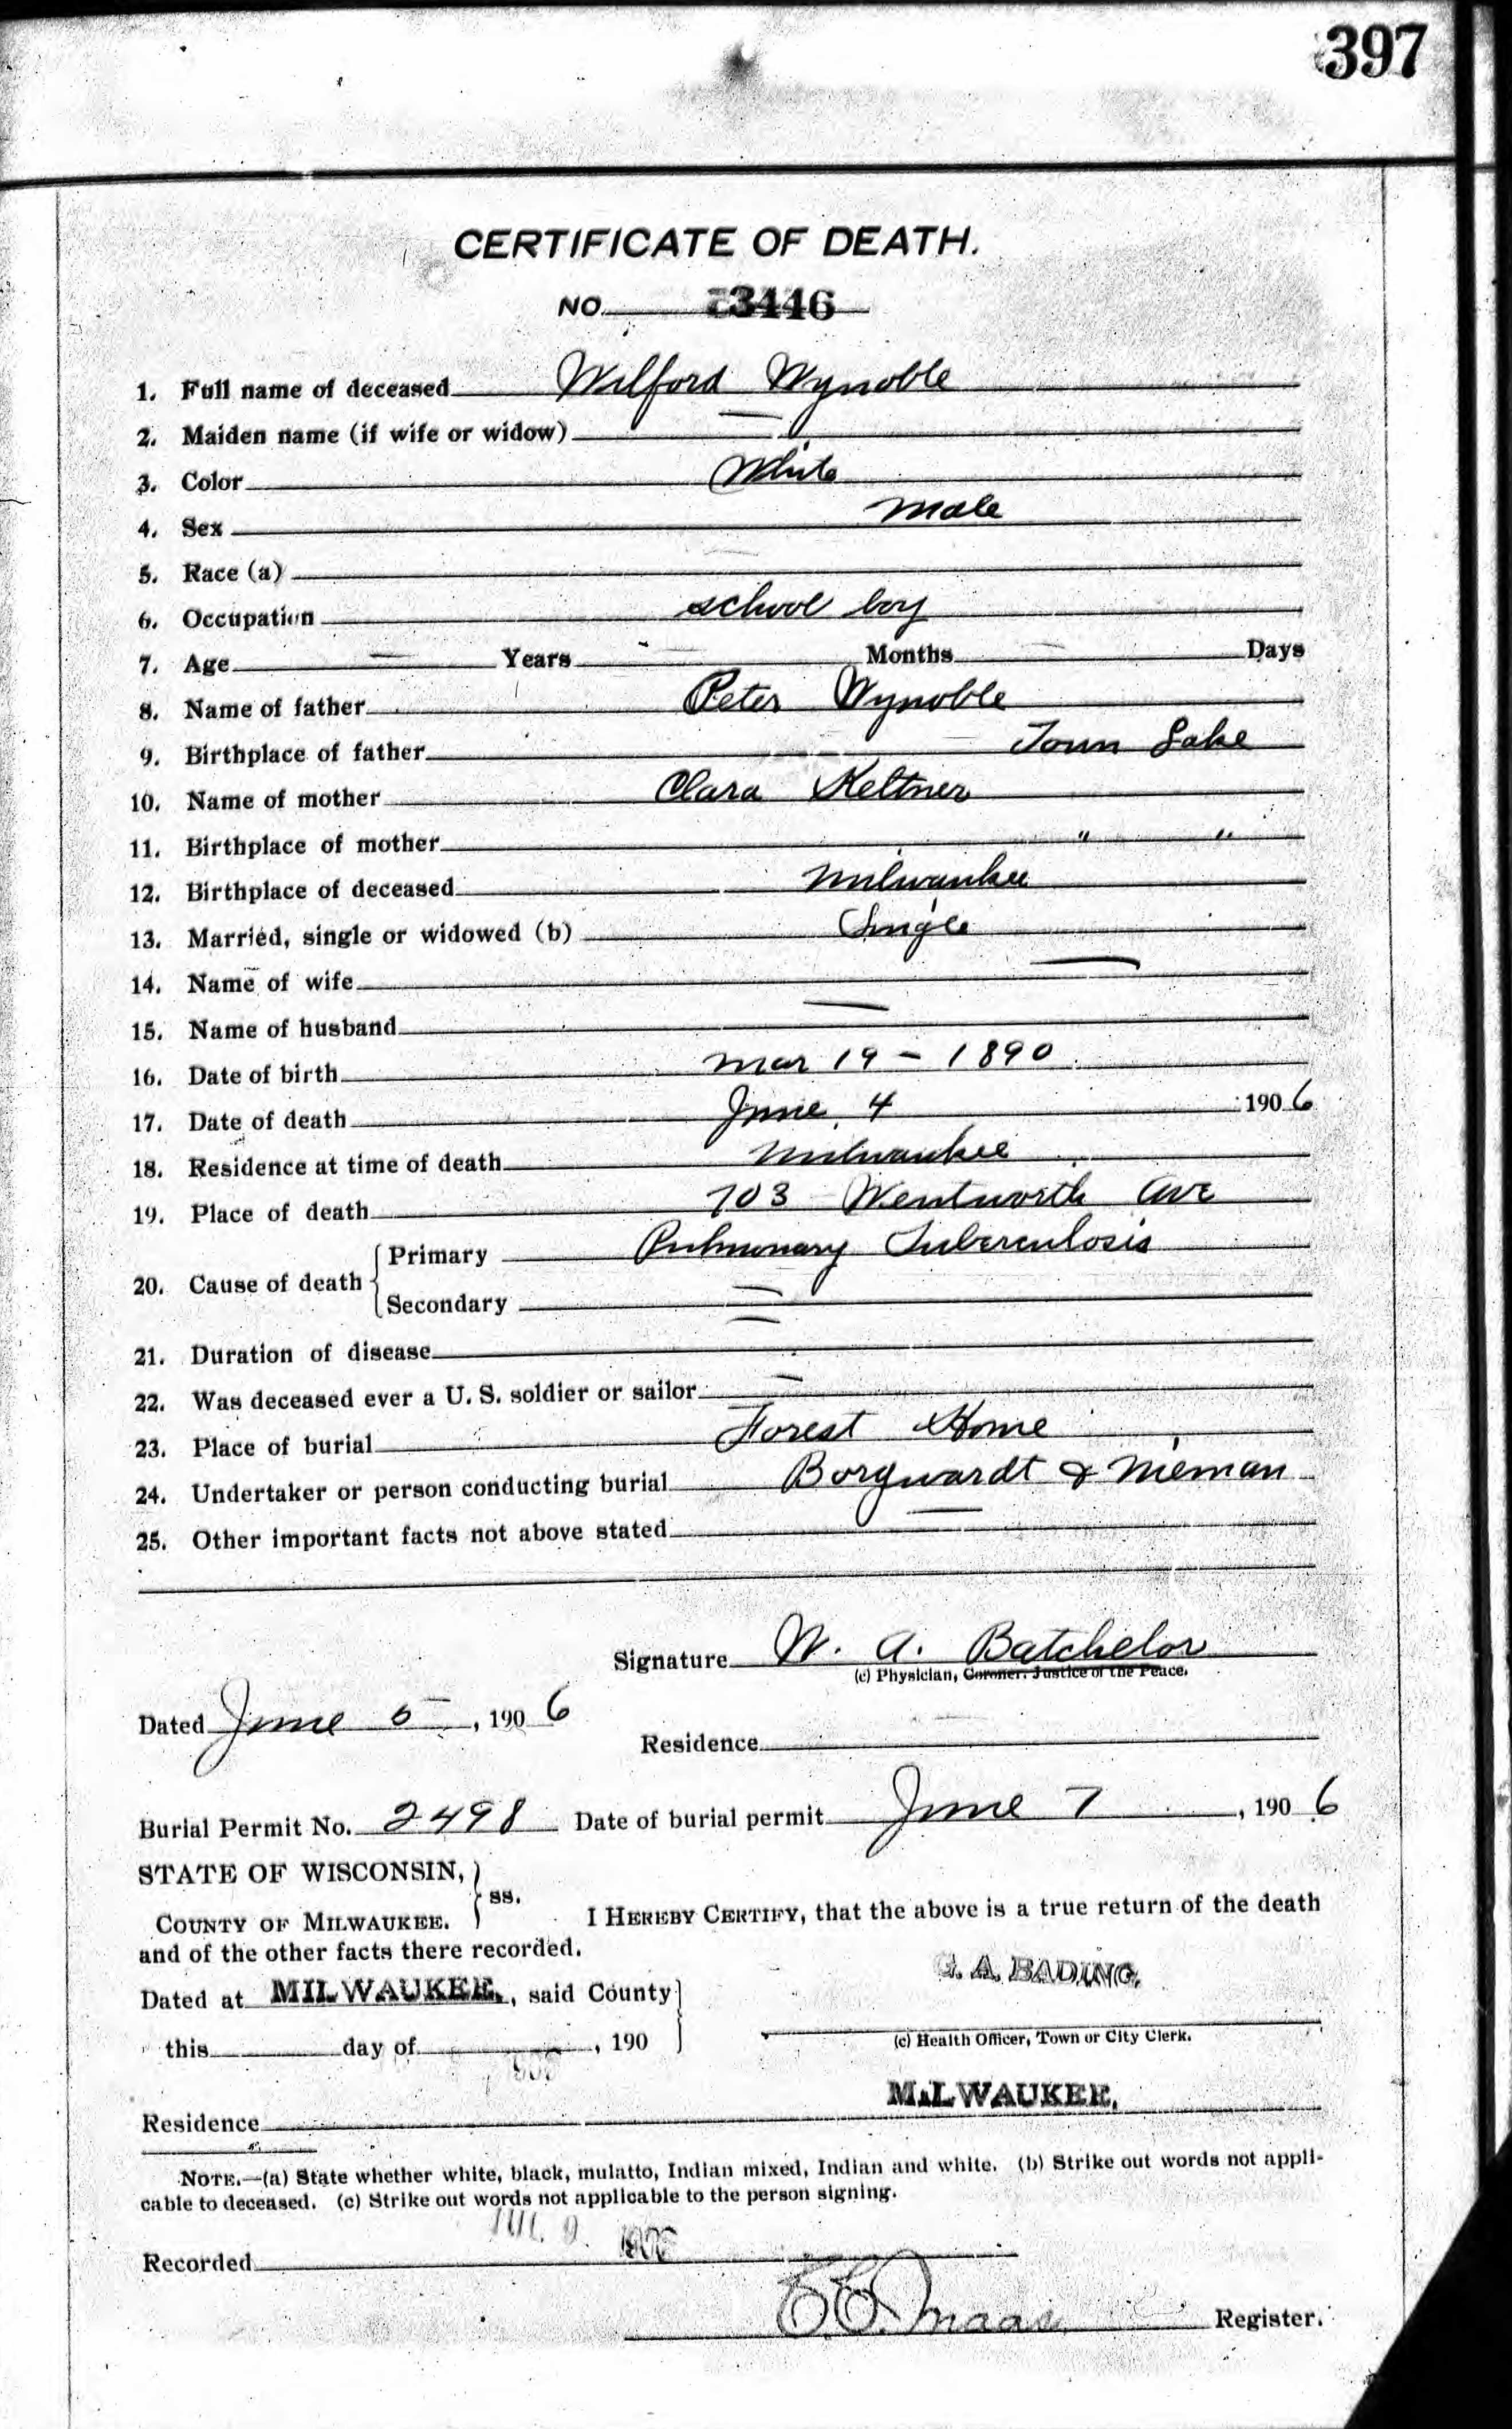 397
CERTIFICATE OF DEATH.
NO. 3446
1. Full name of deceased Wilford Wynoble
2. Maiden name (if wife or widow) —
3. Color White
4. Sex male
5. Race (a)
6. Occupation school boy
7. Age — Years — Months — Days
8. Name of father Peter Wynoble
9. Birthplace of father Town Lake
10. Name of mother Clara Keltner
11. Birthplace of mother " "
12. Birthplace of deceased Milwaukee
13. Married, single or widowed (b) Single
14. Name of wife —
15. Name of husband —
16. Date of birth Mar 19 - 1890
17. Date of death June 4 1906
18. Residence at time of death Milwaukee
19. Place of death 703 Wentworth Ave
20. Cause of death { Primary Pulmonary Tuberculosis
Secondary —
21. Duration of disease —
22. Was deceased ever a U. S. soldier or sailor —
23. Place of burial Forest Home
24. Undertaker or person conducting burial Borgwardt & Nieman
25. Other important facts not above stated —
Signature W. A. Batchelor
(c) Physician, Coroner. Justice of the Peace.
Dated June 5, 1906
Residence
Burial Permit No. 2498 Date of burial permit June 7, 1906
STATE OF WISCONSIN, } ss.
COUNTY OF MILWAUKEE.
I HEREBY CERTIFY, that the above is a true return of the death
and of the other facts there recorded.
G. A. BADING,
Dated at MILWAUKEE, said County }
(c) Health Officer, Town or City Clerk.
this day of , 190
MILWAUKEE,
Residence
NOTE.—(a) State whether white, black, mulatto, Indian mixed, Indian and white. (b) Strike out words not appli-
cable to deceased. (c) Strike out words not applicable to the person signing.
Recorded JUL 9 1906
E. C. Maas Register.